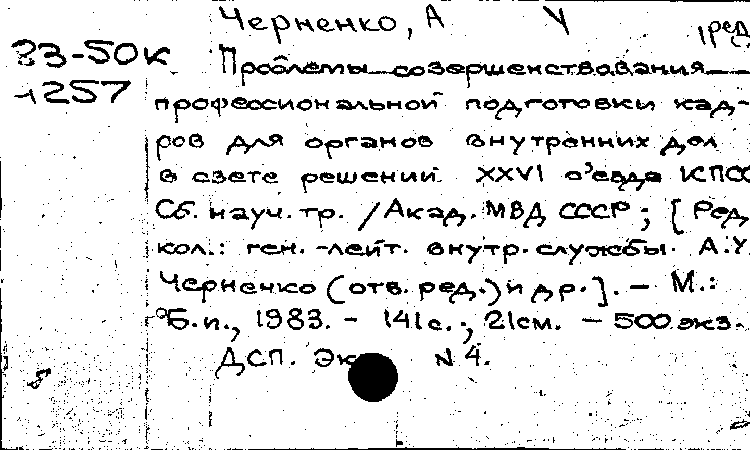 Черненко, А У
ред
83-50к
Проблемы совершенствования
257
профессиональной подготовки кад-
ров для органов внутренних дел
в свете решений XXVI съезда КПСС
Сб. науч. тр. / Акад. МВД СССР; [Ред
кол.: ген.-лейт. внутр. службы А.У.
Черненко (отв. ред.) и др.]. – М.:
Б.и., 1983. – 141с.; 21см. – 500 экз.
ДСП. Эк N 4.